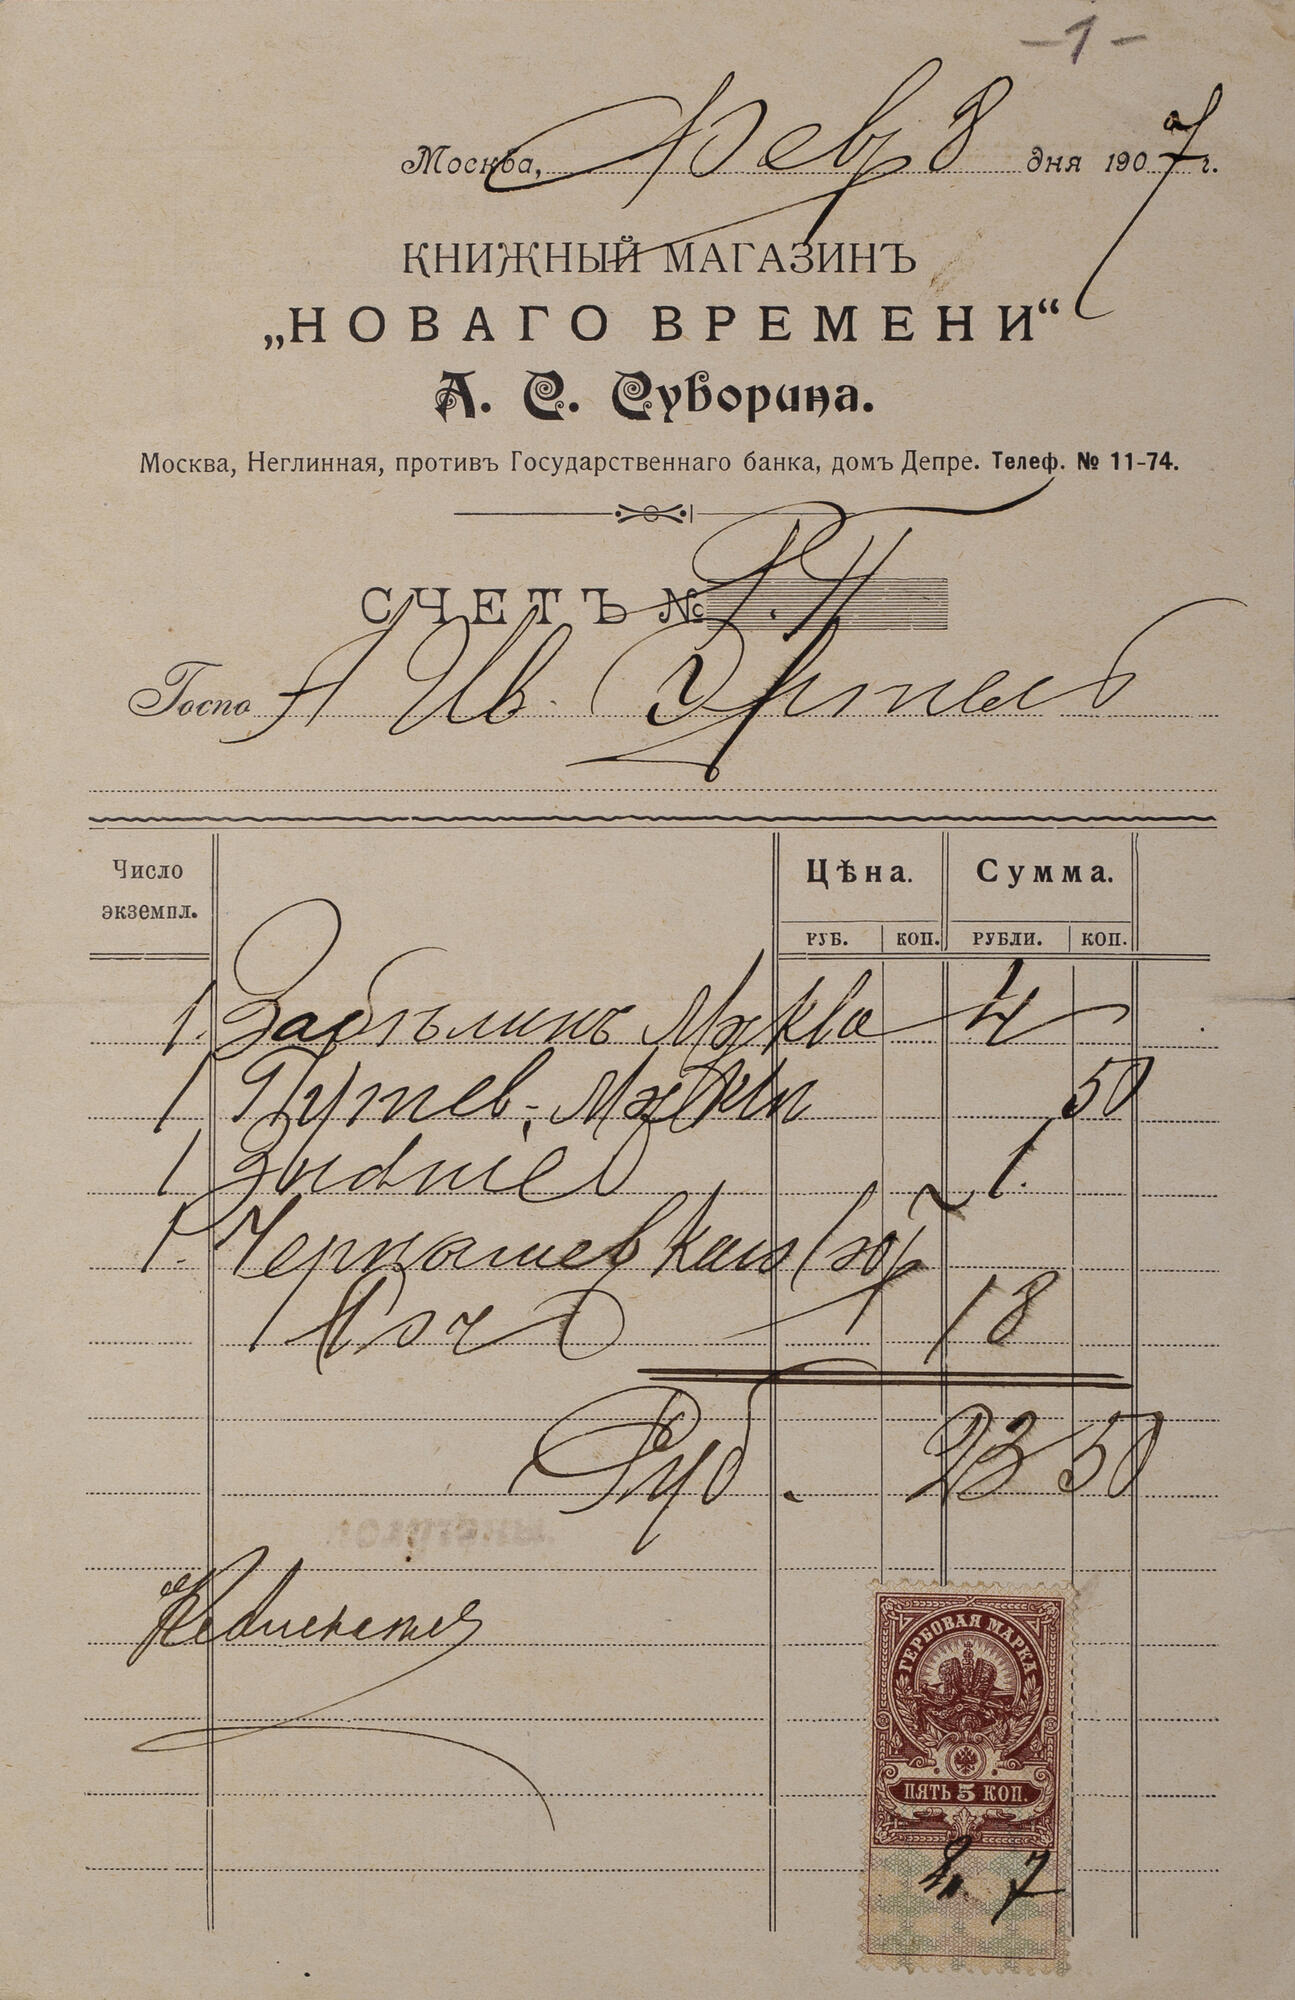 -1-
Москва, Фев 8 дня 1907 г.
КНИЖНЫЙ МАГАЗИНЪ
„НОВАГО ВРЕМЕНИ“
А. С. Суворина.
Москва, Неглинная, противъ Государственнаго банка, домъ Депре. Телеф. № 11-74.
СЧЕТЪ № Г.П.
Госпо А Ив. Эртель
Число экземпл. Цѣна. Сумма.
РУБ. КОП. РУБЛИ. КОП.
1. Забѣлинъ Москва 4
1 Путев. Москвы 50
1 1.
1. Чернышевскаго
18
Руб. 23 50
ГЕРБОВАЯ МАРКА
ПЯТЬ 5 КОП.
7